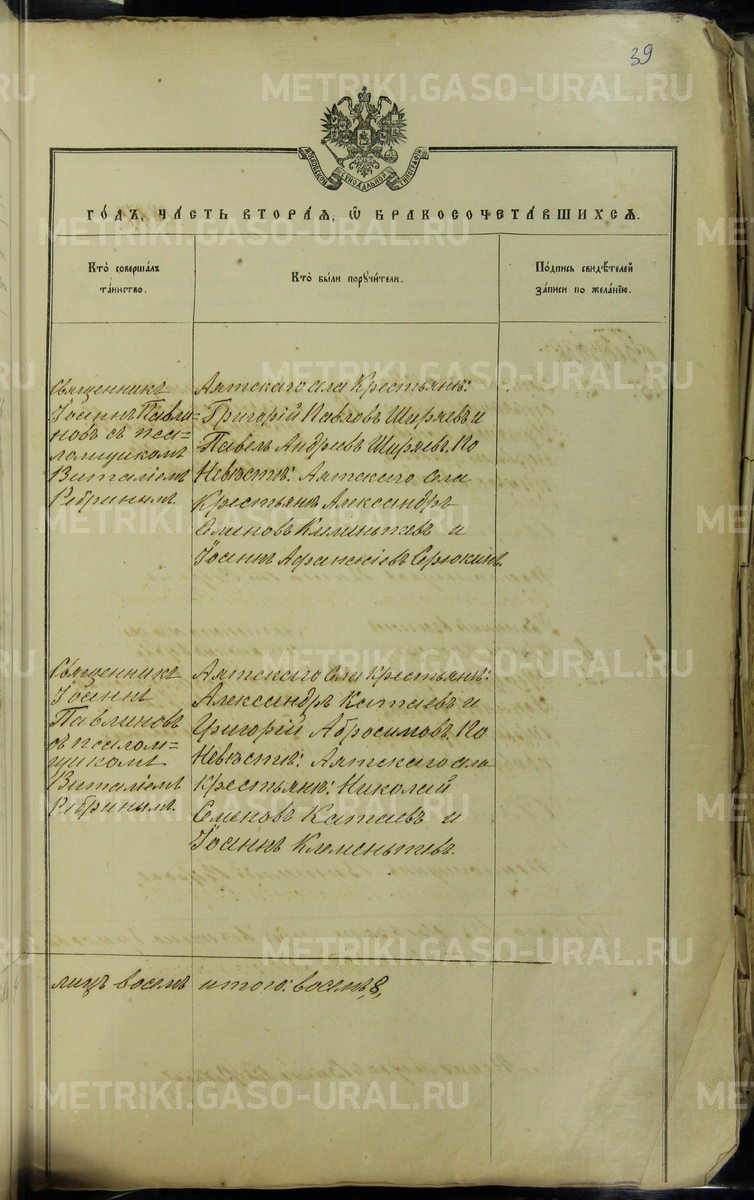 39
МОСКОВСКОЙ СѴНОДАЛЬНОЙ ТИПОГРАФІИ
ГО́ДЪ, ЧА́СТЬ ВТОРА́Я, Ѡ҆ БРАКОСОЧЕТА́ВШИХСЯ.
Кто̀ соверша́лъ
та́инство.
Кто̀ бы́ли поручи́тели.
По́дпись свидѣ́телей
за́писи по жела́нію.
Священникъ
Іоаннъ Павли=
новъ съ пса=
ломщикомъ
Виталіемъ
Ребринымъ.
Аятскаго села Крестьянъ:
Григорій Павловъ Ширяевъ и
Павелъ Андреевъ Ширяевъ. По
Невѣстѣ: Аятскаго села
Крестьянъ Александръ
Семеновъ Клементьевъ и
Іоаннъ Афанасіевъ Серюкинъ.
Священникъ
Іоаннъ
Павлиновъ
съ псалом=
щикомъ
Виталіемъ
Ребринымъ.
Аятскаго села Крестьянъ:
Александръ Катаевъ и
Григорій Абросимовъ. По
Невѣстѣ: Аятскаго села
Крестьянъ: Николай
Семеновъ Катаевъ и
Іоаннъ Клементьевъ.
лицъ восемь итого: восемь, 8,
METRIKI.GASO-URAL.RU